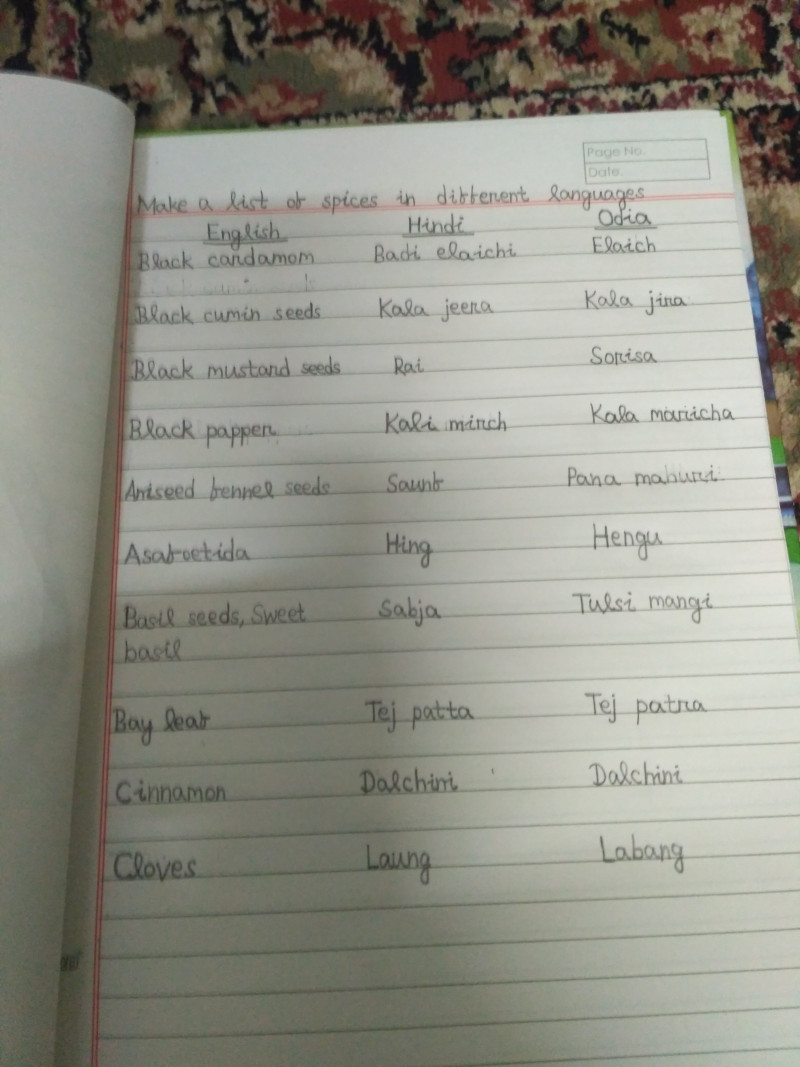 Page No.
Date.
Make a list of spices in different languages
English Hindi Odia
Black cardamom Badi elaichi Elaich
Black cumin seeds Kala jeera Kala jira
Black mustard seeds Rai Sorisa
Black papper Kali mirch Kala maricha
Aniseed fennel seeds Saunf Pana mahuri
Asafoetida Hing Hengu
Basil seeds, Sweet Sabja Tulsi mangi
basil
Bay leaf Tej patta Tej patra
Cinnamon Dalchini Dalchini
Cloves Laung Labang